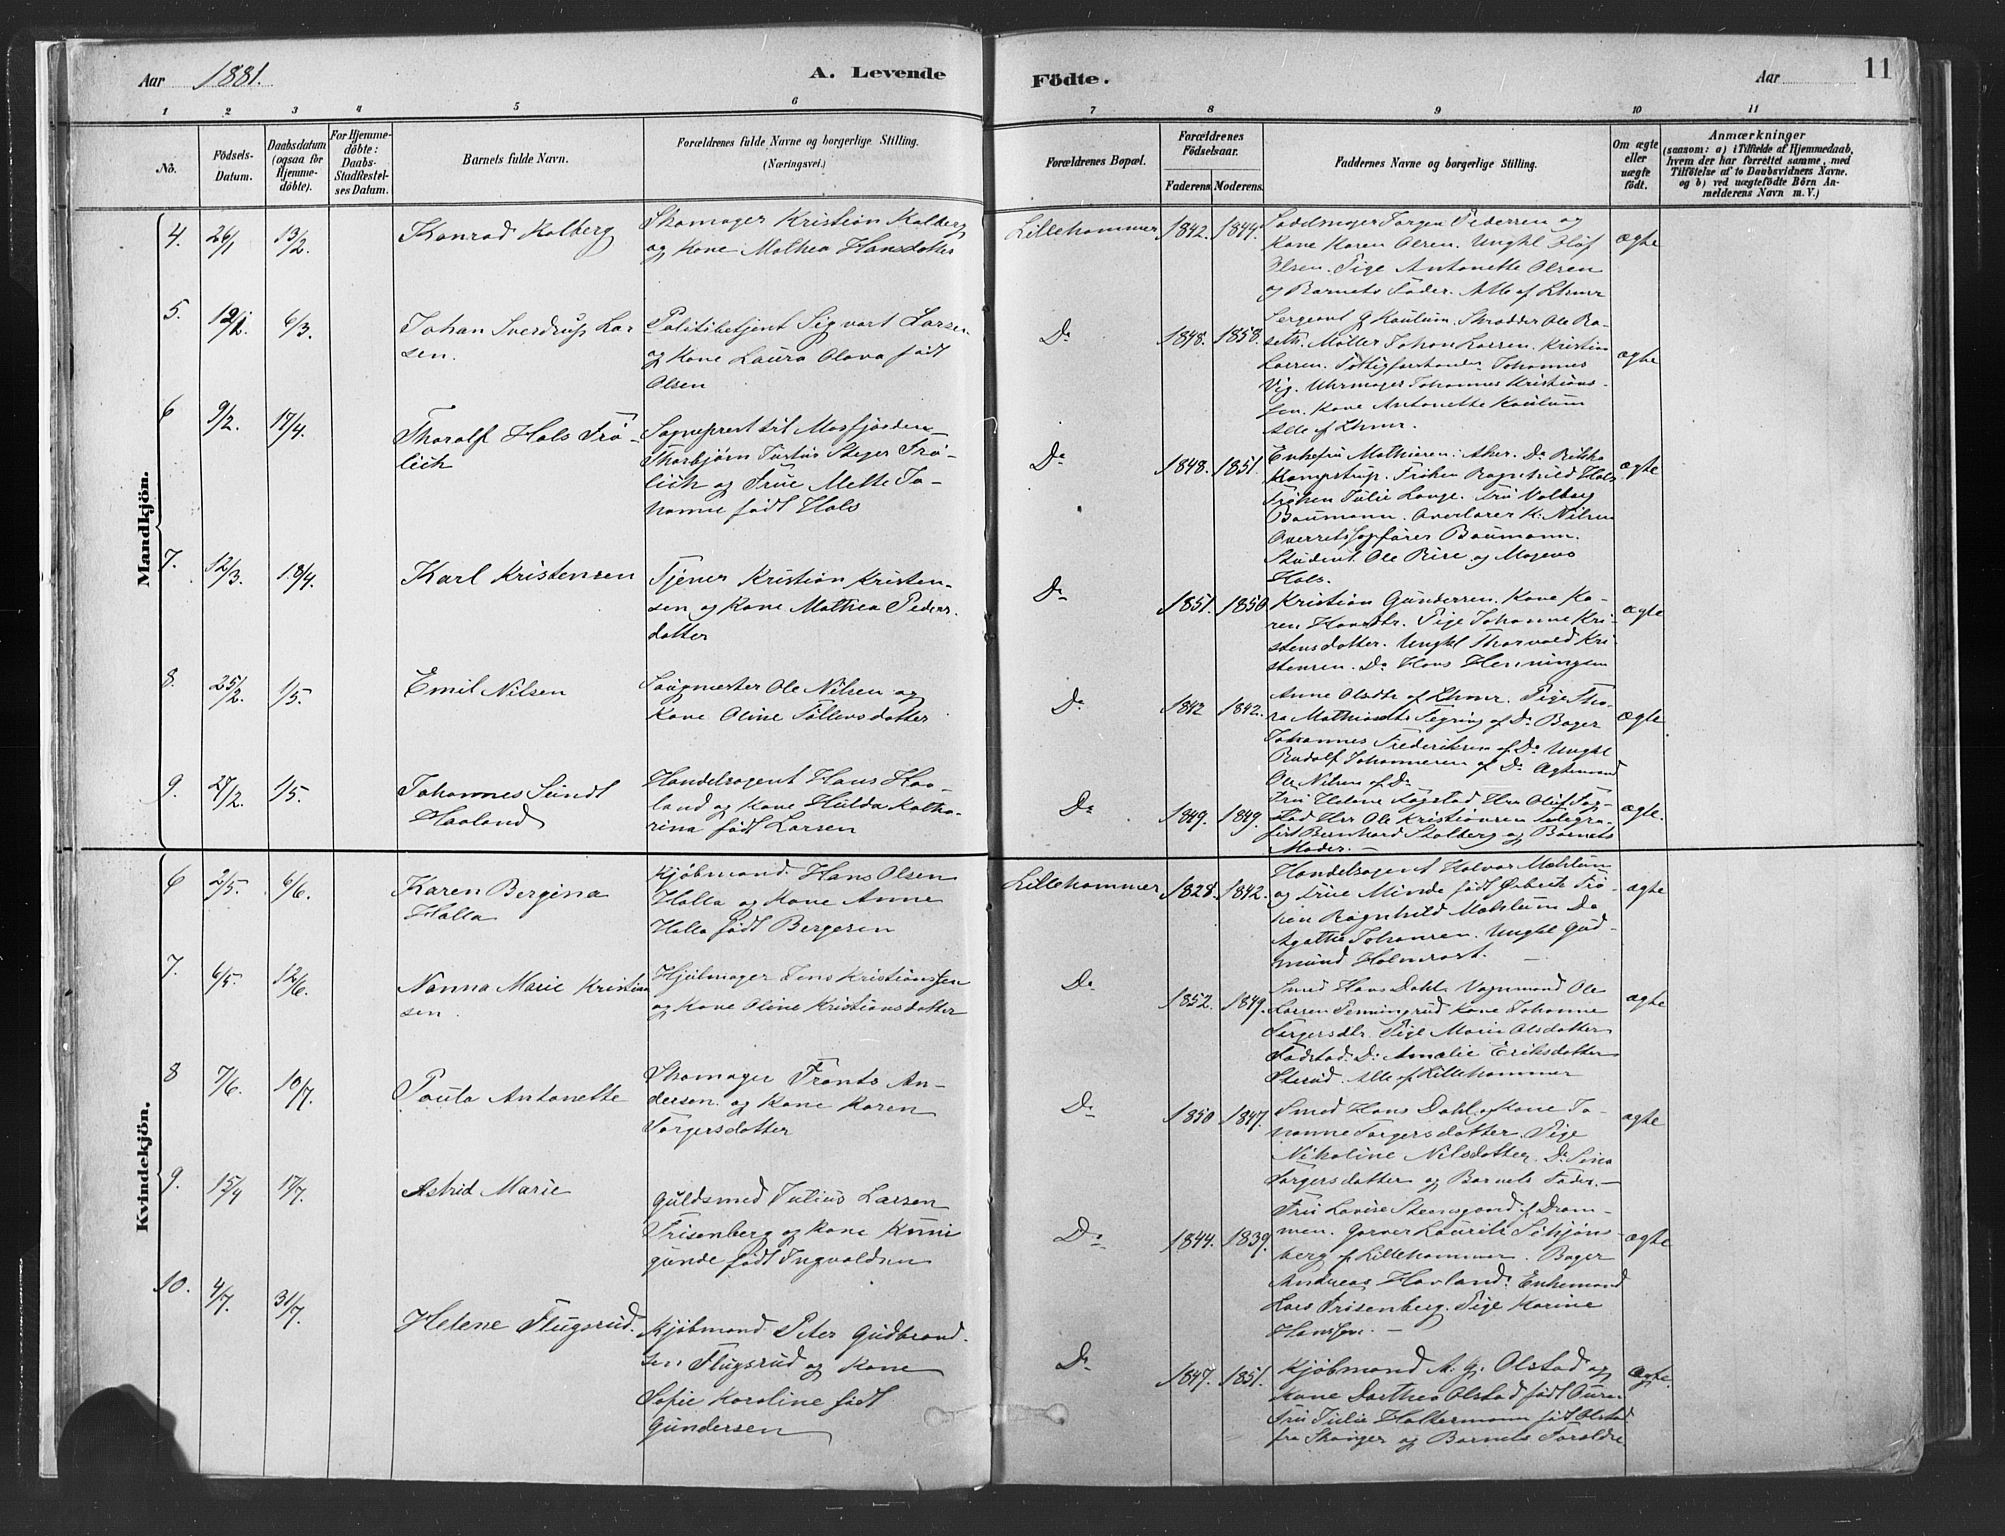 Aar 1881. A. Levende
Födte. Aar 11
1 2 3 4 5 6 7 8 9 10 11
No.
Födsels-Datum.
Daabsdatum (ogsaa for Hjemme-döbte).
For Hjemme-döbte: Daabs-Stadfestel-ses Datum.
Barnets fulde Navn.
Forældrenes fulde Navne og borgerlige Stilling.
(Næringsvei.)
Forældrenes Bopæl.
Forældrenes Födselsaar.
Faderens. Moderens.
Faddernes Navne og borgerlige Stilling.
Om ægte eller uægte födt.
Anmærkninger
(saasom: a) i Tilfælde af Hjemmedaab,
hvem der har forrettet samme, med
Tilföielse af to Daabsvidners Navne.
og b) ved uægtefödte Börn An-
melderens Navn m. V.)
Mandkjön.
4. 26/1 13/2. Konrad Kolberg
Skomager Kristian Kolberg
og Kone Mathea Hansdatter
Lillehammer 1842. 1844.
Sadelmager Jörgen Pedersen og
Kone Karen Olsen. Ungkl Olaf
Olsen. Pige Antonette Olsen
og Barnets Fader. Alle af Lhmr
ægte
5. 6/3. Johan Sverdrup Lar
sen.
Politibetjent Sigvart Larsen
og Kone Laura Olava födt
Olsen
Do 1848. 1858.
Sergeant G Kaulum. Skrædder Ole
Möller Johan Larsen. Kristian
Larsen. Fattigforstander Johannes
Vig. Uhrmager Johannes Kristian-
sen. Kone Antonette Kaulum
Alle af Lhmr.
ægte
6 9/2. 17/4. Thoralf Hals Frö-
lich
Sogneprest til Masfjorden
Thorbjörn Justus Steger Frö-
lich og Frue Mette Jo-
hanne födt Hals
Do 1848. 1851.
Enkefru Mathiesen. Aker. Do
Kampstrup. Fröken Ragnhild Hals
Fröken Julie Lange. Fru Valborg
Baumann. Overlærer K. Nilsen
Overretssagförer Baumann.
Student Ole Rise og Mogens
Hals.
ægte
7. 12/3. 18/4. Karl Kristensen
Tjener Kristian Kristen-
sen og Kone Mathea Peders-
datter
Do 1851. 1850
Kristian Gundersen. Kone Ka-
ren Hansdtr. Pige Johanne Kri-
stensdatter. Ungkl Thorvald Kri-
stensen. Do Hans Henningsen
ægte
8. 25/2. 1/5. Emil Nilsen
Ole Nilsen og
Kone Oline Tollevsdatter
Do 1842 1842.
Anne Olsdtr af Lhmr. Pige Tho-
ra Mathisdtr af Do Bager
Johannes Frederiksen af Do Ungkl
Rudolf Johannesen af Do Ægtemand
Ole Nilsen af Do
ægte
9. 27/2. 1/5. Johannes Sundt
Haaland
Handelsagent Hans Haa-
land og Kone Hulda Katha-
rina födt Larsen
Do 1849. 1849.
Fru Helene Fogstad. Hrr Oluf Fog-
stad Hrr Ole Kristiansen Telegra-
fist Bernhard Stalberg og Barnets
Moder. —
ægte.
Kvindekjön.
6 2/5. 6/6. Karen Bergina
Halla
Kjöbmand Hans Olsen
Halla og Kone Anne
Halla födt Bergesen
Lillehammer 1828. 1842.
Handelsagent Halvor Mæhlum
og Frue Minda födt Frö-
ken Ragnhild Mæhlum Do
Agathe Johansen. Ungkl Gud-
mund —
ægte
7. 6/5. 12/6. Nanna Marie Kristian
sen.
Hjulmager Jens Kristiansen
og Kone Oline Kristiansdatter
Do 1852. 1849.
Smed Hans Dahl. Vognmand Ole
Larsen Kone Johanne
Torgersdtr. Pige Marie Olsdatter
Do Amalie Eriksdatter
Alle af Lillehammer
ægte
8 7/6. 10/7. Paula Antonette
Skomager Frants An-
dersen og Kone Karen
Torgersdatter
Do 1850 1847.
Smed Hans Dahl og Kone Jo-
hanne Torgersdatter. Pige
Nikoline Nilsdatter. Do Sina
Torgersdatter og Barnets Fader. —
ægte
9. 15/4 17/7. Astrid Marie
Guldsmed Julius Larsen
Frisenberg og Kone Kuni
gunde födt Ingvaldsen
Do 1844. 1839.
Fru Lovise Steensgaard af Dram-
men. Garver Laurits
berg af Lillehammer. Bager
Andreas Havland. Enkemand
Lars Frisenberg. Pige Karine
Hansen. —
ægte
10. 4/7. 31/7. Helene Flugsrud.
Kjöbmand Peter Gudbrand-
sen Flugsrud og Kone
Sofie Karoline födt
Gundersen
Do 1847. 1851.
Kjöbmand A. G. Olstad og
Kone Dorthea Olstad födt
Fru Julie Haltermann födt Olstad
fra Stavanger og Barnets Forældre
ægte.